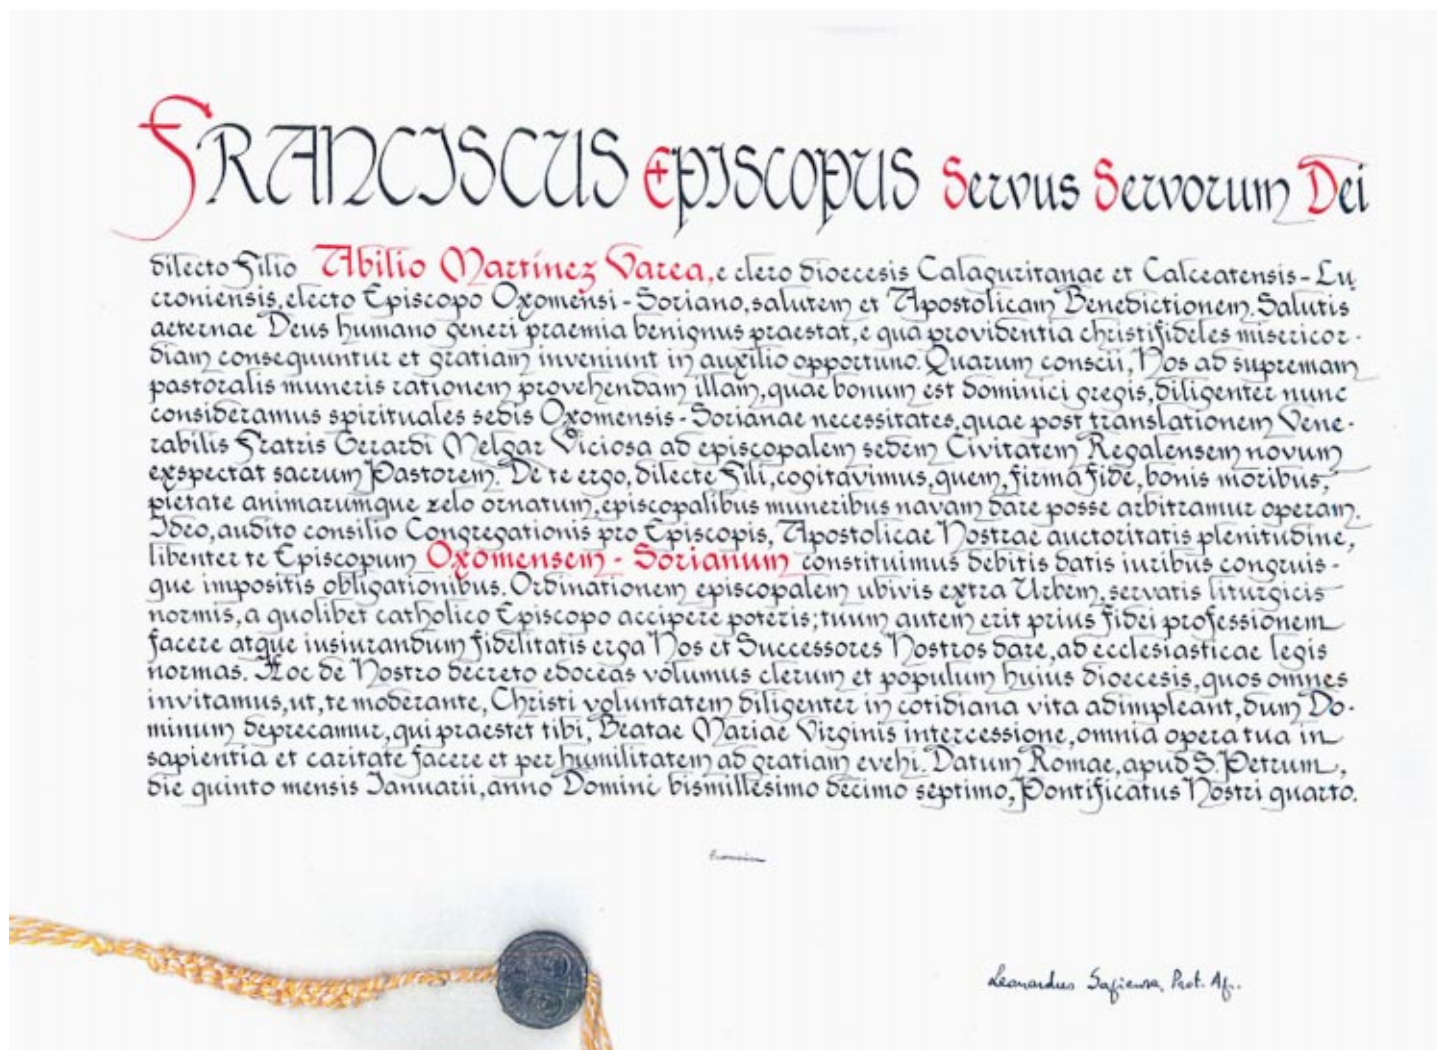 FRANCISCUS EPISCOPUS Servus Servorum Dei
dilecto Filio Abilio Martínez Varea, e clero dioecesis Calaguritanae et Calceatensis-Lu
croniensis, electo Episcopo Oxomensi-Soriano, salutem et Apostolicam Benedictionem. Salutis
aeternae Deus humano generi praemia benignus praestat, e qua providentia christifideles misericor-
diam consequuntur et gratiam inveniunt in auxilio opportuno. Quarum conscii, Nos ad supremam
pastoralis muneris rationem provehendam illam, quae bonum est dominici gregis, diligenter nunc
consideramus spirituales sedis Oxomensis-Sorianae necessitates, quae post translationem Vene-
rabilis Fratris Gerardi Melgar Viciosa ad episcopalem sedem Civitatem Regalensem novum
exspectat sacrum Pastorem. De te ergo, dilecte Fili, cogitavimus, quem, firma fide, bonis moribus,
pietate animarumque zelo ornatum, episcopalibus muneribus navam dare posse arbitramur operam.
Ideo, audito consilio Congregationis pro Episcopis, Apostolicae Nostrae auctoritatis plenitudine,
libenter te Episcopum Oxomensem-Sorianum constituimus debitis datis iuribus congruis-
que impositis obligationibus. Ordinationem episcopalem ubivis extra Urbem, servatis liturgicis
normis, a quolibet catholico Episcopo accipere poteris; tuum autem erit prius fidei professionem
facere atque iusiurandum fidelitatis erga Nos et Successores Nostros dare, ad ecclesiasticae legis
normas. Hoc de Nostro decreto edoceas volumus clerum et populum huius dioecesis, quos omnes
invitamus, ut, te moderante, Christi voluntatem diligenter in cotidiana vita adimpleant, dum Do-
minum deprecamur, qui praestet tibi, Beatae Mariae Virginis intercessione, omnia opera tua in
sapientia et caritate facere et per humilitatem ad gratiam evehi. Datum Romae, apud S. Petrum,
die quinto mensis Ianuarii, anno Domini bismillesimo decimo septimo, Pontificatus Nostri quarto.
Leonardus Sapienza, Prot. Ap.